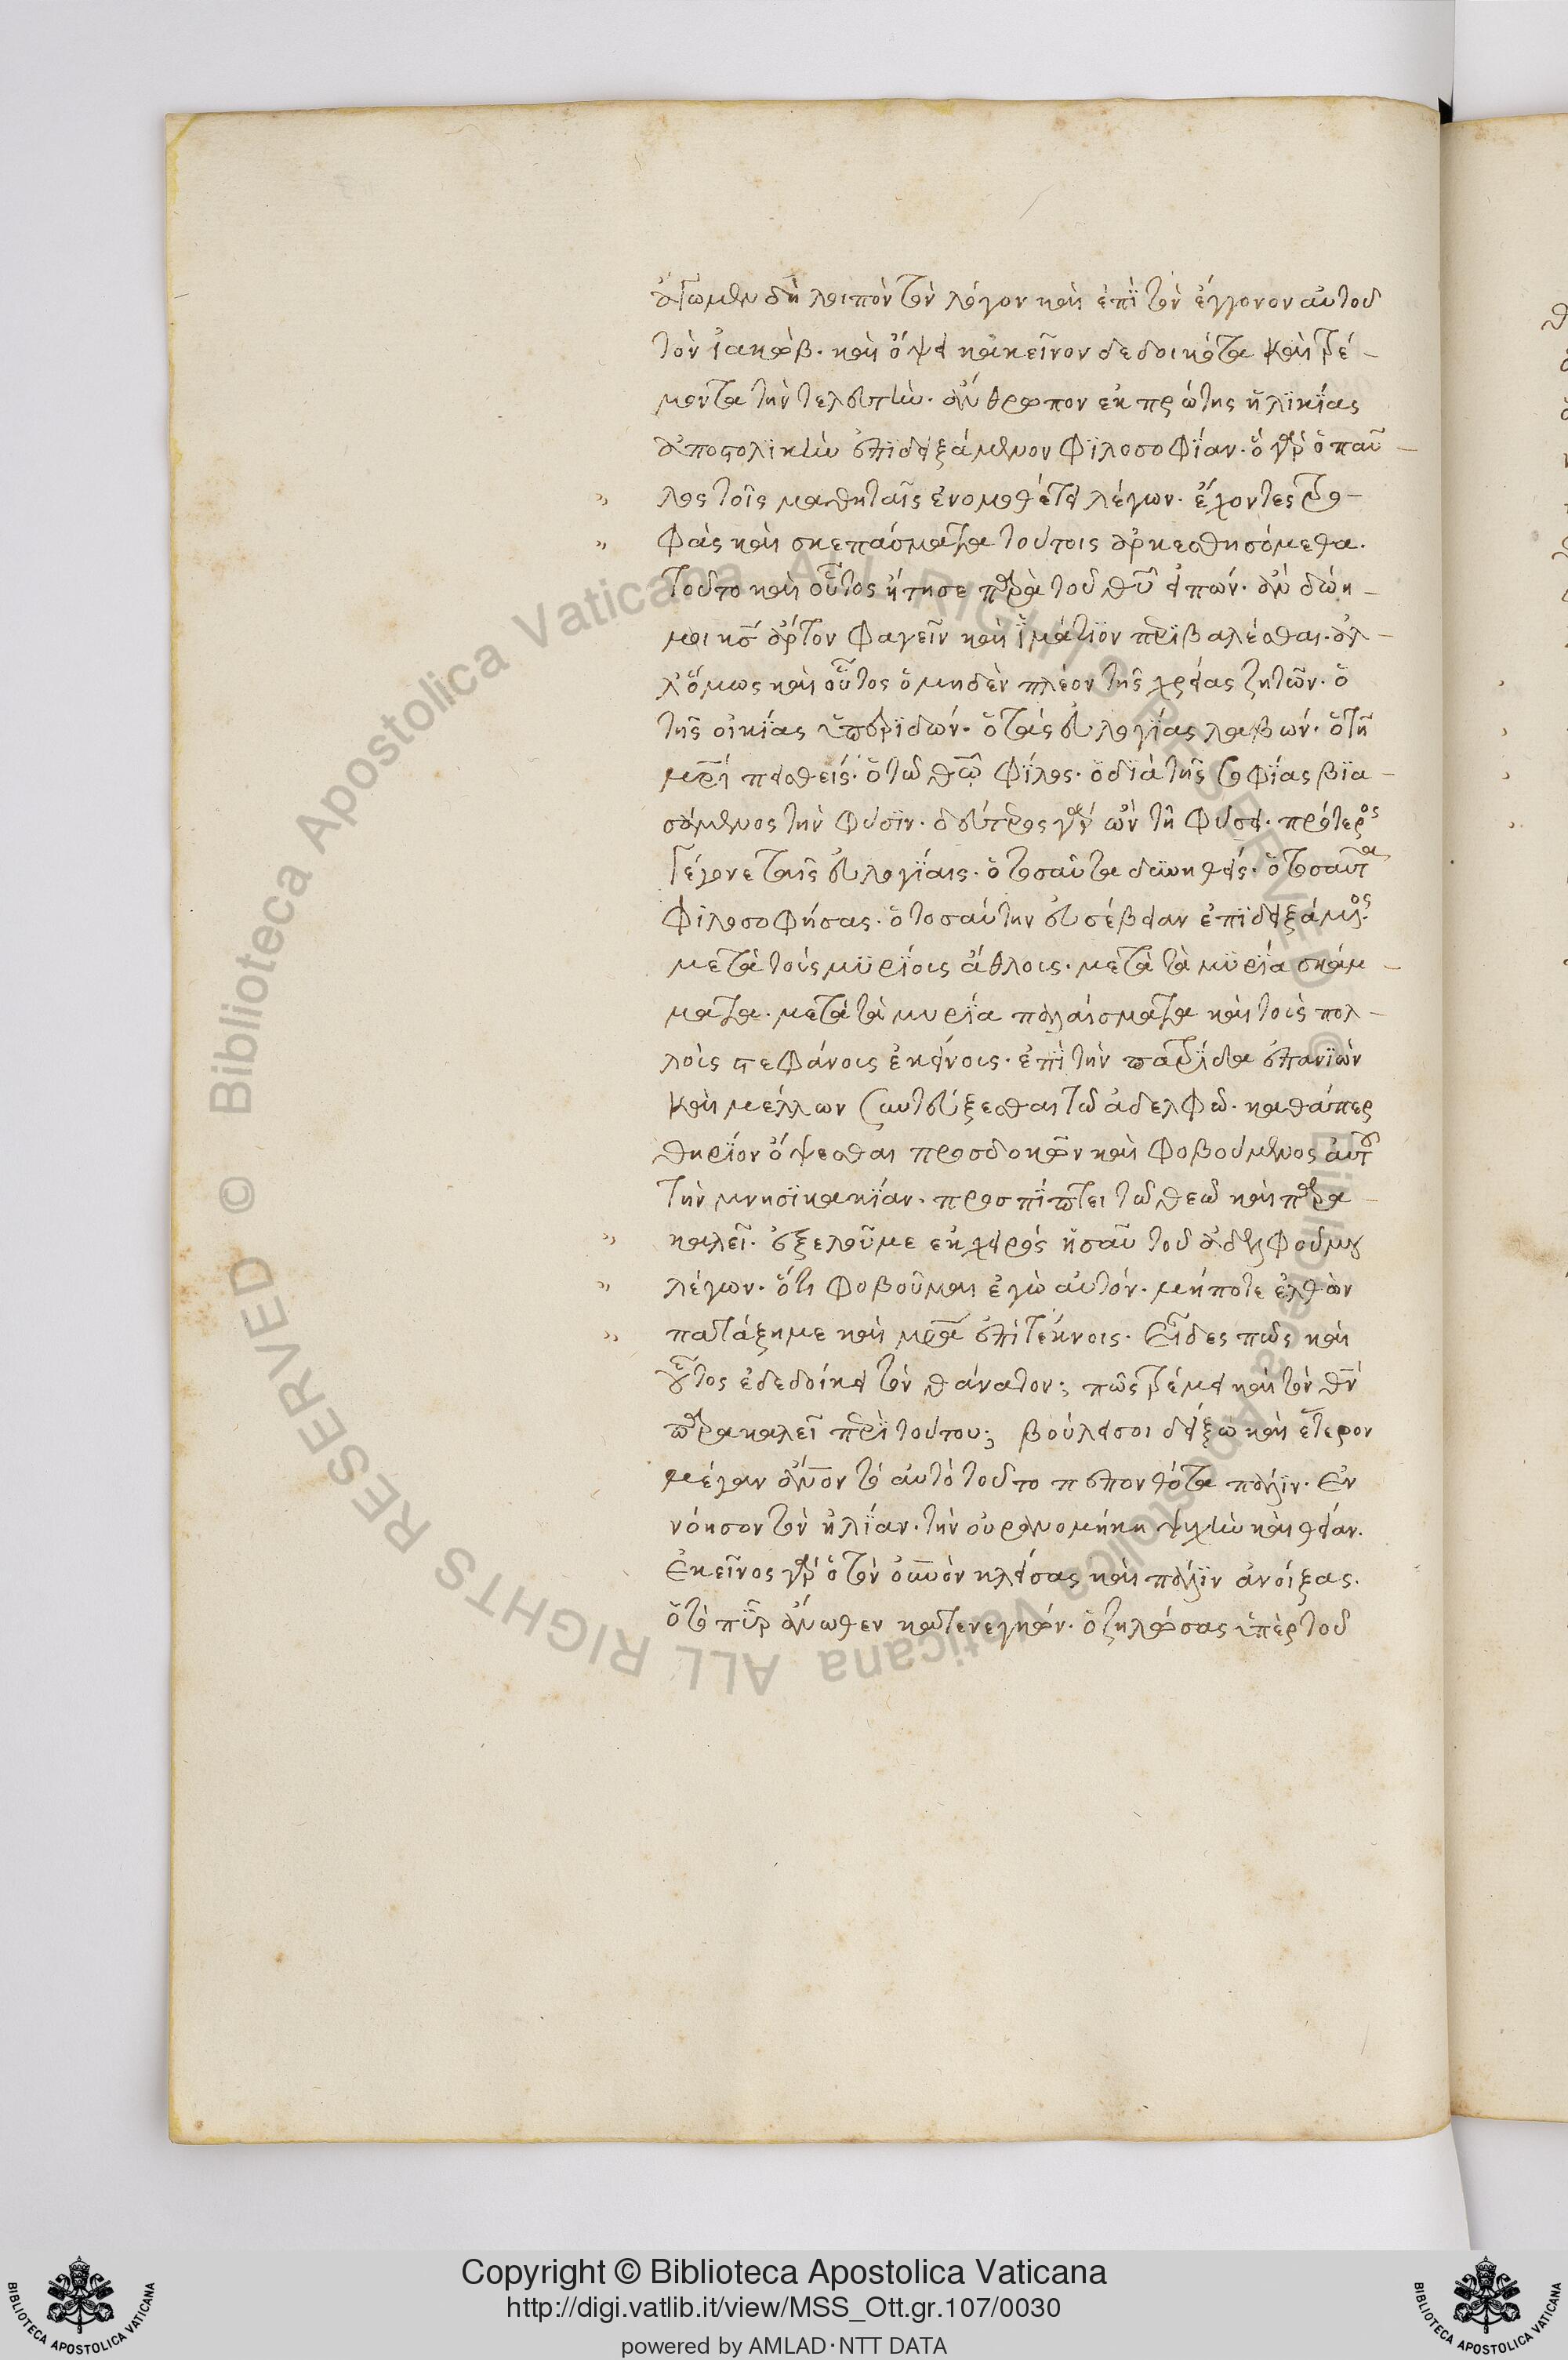 ἄγωμεν δὴ λοιπὸν τὸν λόγον καὶ ἐπὶ τὸν ἔγγονον αὐτοῦ
τὸν ἰακώβ. καὶ ὄψει κἀκεῖνον δεδοικότα καὶ τρέ-
μοντα τὴν τελευτήν. ἄνθρωπον ἐκ πρώτης ἡλϊκΐας
ἀποστολϊκὴν ἐπϊδειξάμενον φϊλοσοφΐαν. ὃ γὰρ ὁ παῦ-
λος τοῖς μαθηταῖς ἐνομοθέτει λέγων. ἔχοντες τρο-
φὰς καὶ σκεπάσματα τούτοις ἀρκεσθησόμεθα.
τοῦτο καὶ οὗτος ᾔτησε παρὰ τοῦ θῦ εἰπών. ἂν δώη-
μοι κς ἄρτον φαγεῖν καὶ ἱμάτϊον περϊβαλέσθαι. ἀλ-
λ' ὅμως καὶ οὗτος ὁ μηδὲν πλέον τῆς χρείας ζητῶν. ὁ
τῆς οἰκΐας ὑπεριδών. ὁ τὰς εὐλογΐας λαβών. ὁ τῆ
μρὶ πεισθείς. ὁ τῶ θῶ φΐλος. ὁ δϊὰ τῆς σοφΐας βϊα-
σάμενος τὴν φύσϊν. δεύτερος γὰρ ὢν τῆ φύσει. πρότερος
γέγονε ταῖς εὐλογΐαις. ὁ τοσαῦτα διωκηθείς. ὁ τοσαῦτα
φϊλοσοφήσας. ὁ τοσαύτην εὐσέβειαν ἐπϊδειξάμενος.
μετὰ τοὺς μϋρΐους ἄθλους. μετὰ τὰ μϋρΐα σκάμ-
ματα. μετὰ τὰ μυρΐα παλαίσματα καὶ τοὺς πολ-
λοὺς στεφάνους ἐκείνους. ἐπὶ τὴν πατρΐδα ἐπανϊὼν
καὶ μέλλων συντεύξεσθαι τῶ ἀδελφῶ. καθάπερ
θηρΐον ὄψεσθαι προσδοκῶν καὶ φοβούμενος αὐτοῦ
τὴν μνησϊκακΐαν. προσπΐπτει τῶ θεῶ καὶ παρα-
καλεῖ. ἐξελοῦ με ἐκ χειρὸς ἠσαῦ τοῦ ἀδελφοῦ μου
λέγων. ὅτι φοβοῦμαι ἐγὼ αὐτόν. μήποτε ἐλθὼν
πατάξη με καὶ μρα ἐπὶ τέκνοις. Εἶδες πῶς καὶ
οὗτος ἐδεδοίκει τὸν θάνατον; πῶς τρέμει καὶ τὸν θν
παρακαλεῖ περὶ τούτου; βούλει σοι δείξω καὶ ἕτερον
μέγαν ἄνον τὸ αὐτὸ τοῦτο πεπονθότα πάλϊν. Ἐν
νόησον τὸν ἠλΐαν. τὴν οὐρανομήκη ψυχὴν καὶ θείαν.
Ἐκεῖνος γὰρ ὁ τὸν οὐνὸν κλείσας καὶ πάλϊν ἀνοίξας.
ὁ τὸ πῦρ ἄνωθεν κατενεγκών. ὁ ζηλώσας ὑπὲρ τοῦ
Copyright © Biblioteca Apostolica Vaticana
http://digi.vatlib.it/view/MSS_Ott.gr.107/0030
powered by AMLAD·NTT DATA